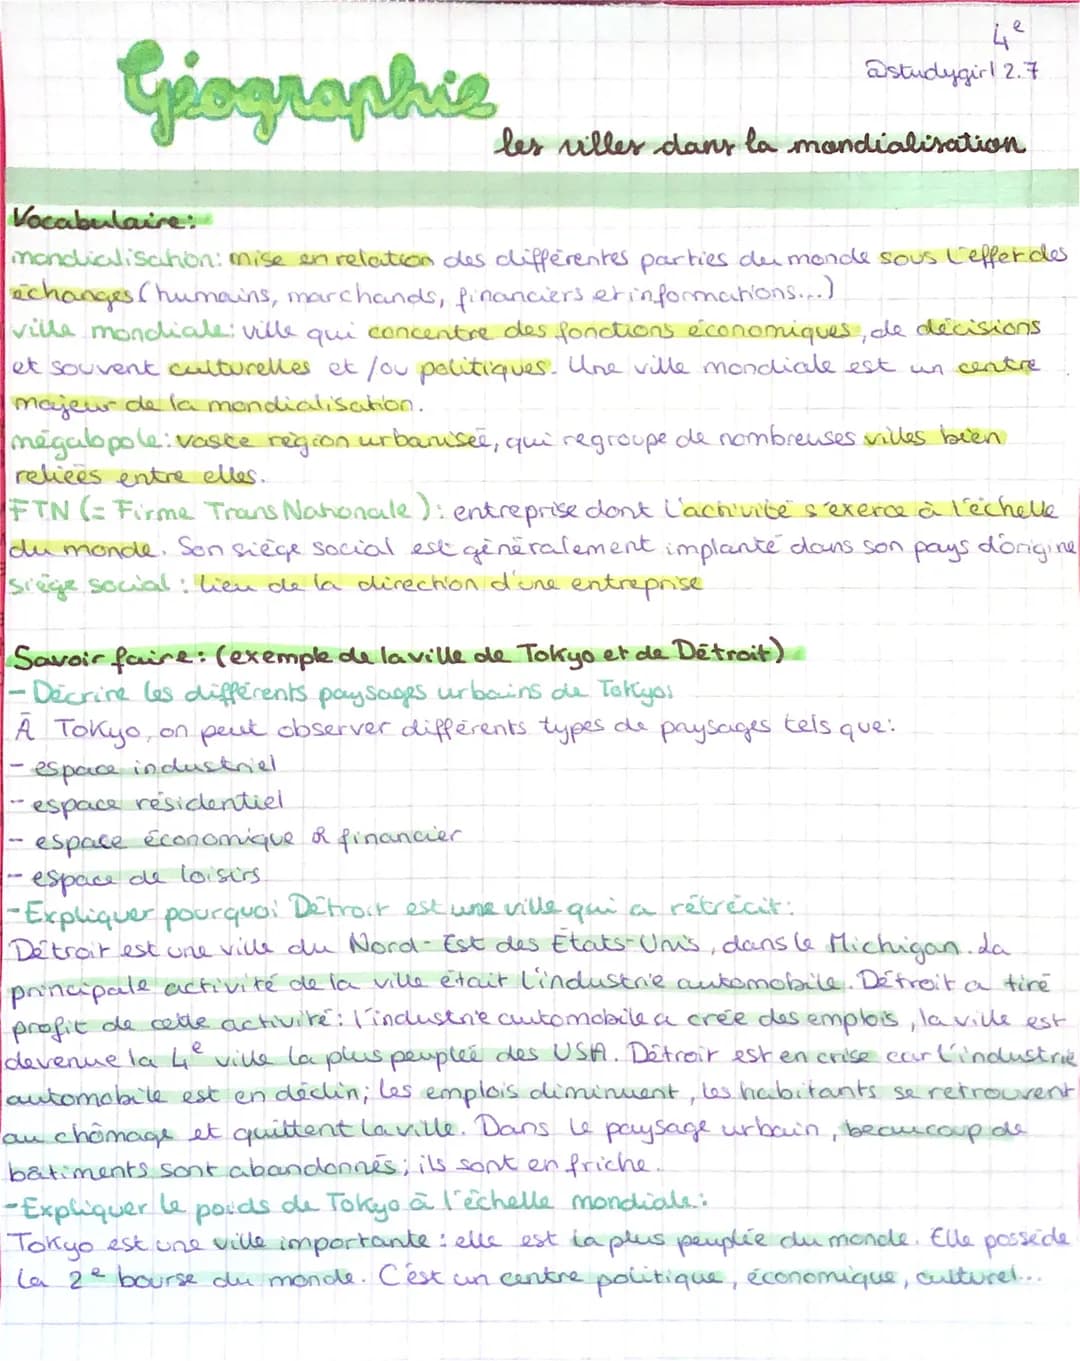 4e
@studygirl 2.7
Géographie
les villes dans la mondialisation
Vocabulaire:
mondialisation: mise en relation des différentes parties du monde sous l'effet des
échanges (humains, marchands, financiers et informations...)
ville mondiale: ville qui concentre des fonctions économiques, de décisions
et souvent culturelles et /ou politiques. Une ville mondiale est un centre
majeur de la mondialisation.
mégalopole: vaste région urbanisée, qui regroupe de nombreuses villes bien
reliées entre elles.
FTN (= Firme Trans Nationale): entreprise dont l'activité s'exerce à l'échelle
du monde. Son siège social est généralement implanté dans son pays d'origine
siège social: lieu de la direction d'une entreprise
Savoir faire: (exemple de la ville de Tokyo et de Détroit)
- Décrire les différents paysages urbains de Tokyo:
À Tokyo, on peut observer différents types de paysages tels que:
- espace industriel
- espace résidentiel
- espace économique & financier
- espace de loisirs
- Expliquer pourquoi Détroit est une ville qui a rétrécit:
Détroit est une ville du Nord-Est des États-Unis, dans le Michigan. La
principale activité de la ville était l'industrie automobile. Détroit a tiré
profit de cette activité: l'industrie automobile a créé des emplois, la ville est
devenue la 4e ville la plus peuplée des USA. Détroit est en crise car l'industrie
automobile est en déclin; les emplois diminuent, les habitants se retrouvent
au chômage et quittent la ville. Dans le paysage urbain, beaucoup de
bâtiments sont abandonnés; ils sont en friche.
- Expliquer le poids de Tokyo à l'échelle mondiale:
Tokyo est une ville importante: elle est la plus peuplée du monde. Elle possède
la 2e bourse du monde. C'est un centre politique, économique, culturel...